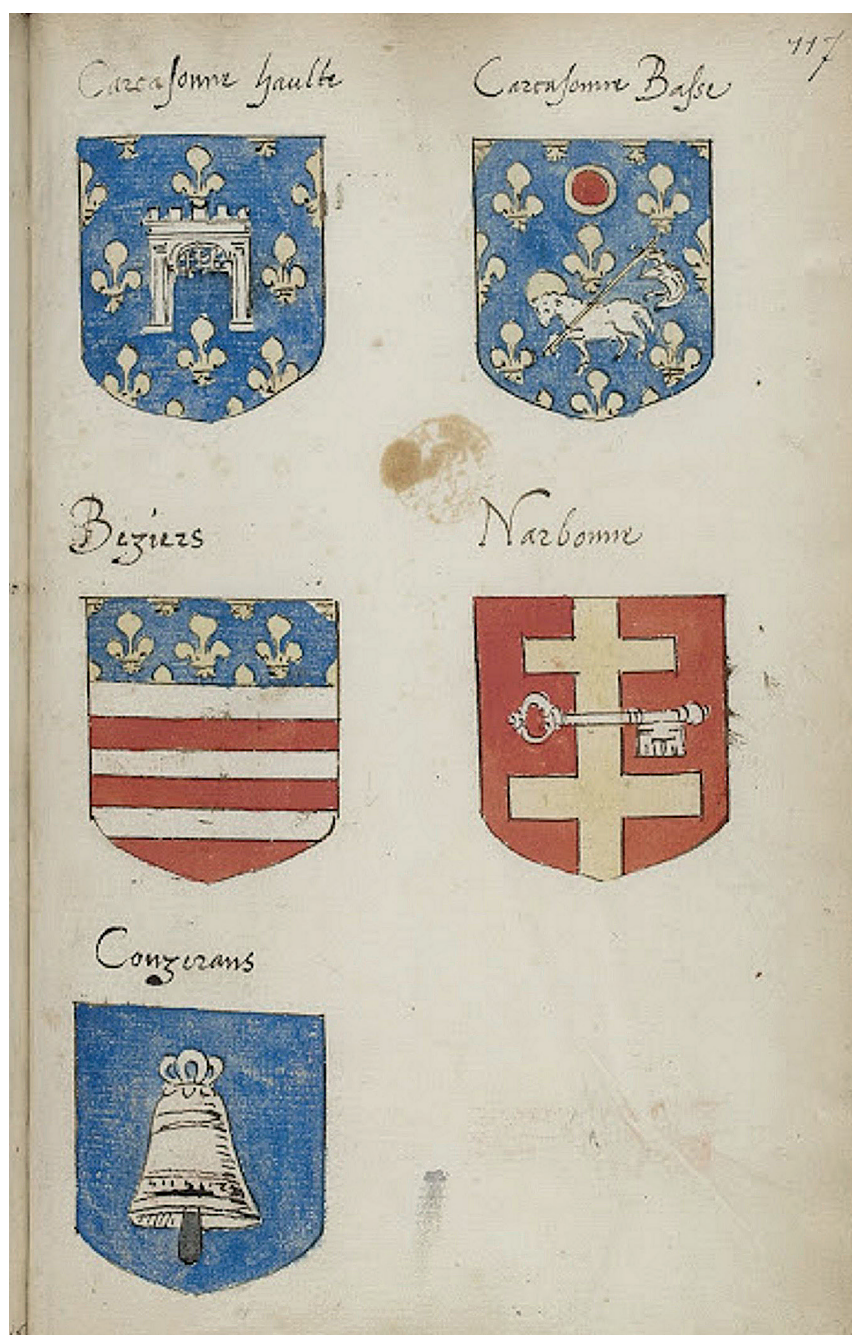 117
Carcasonne haulte
Carcasonne Basse
Beziers
Narbonne
Conzerans